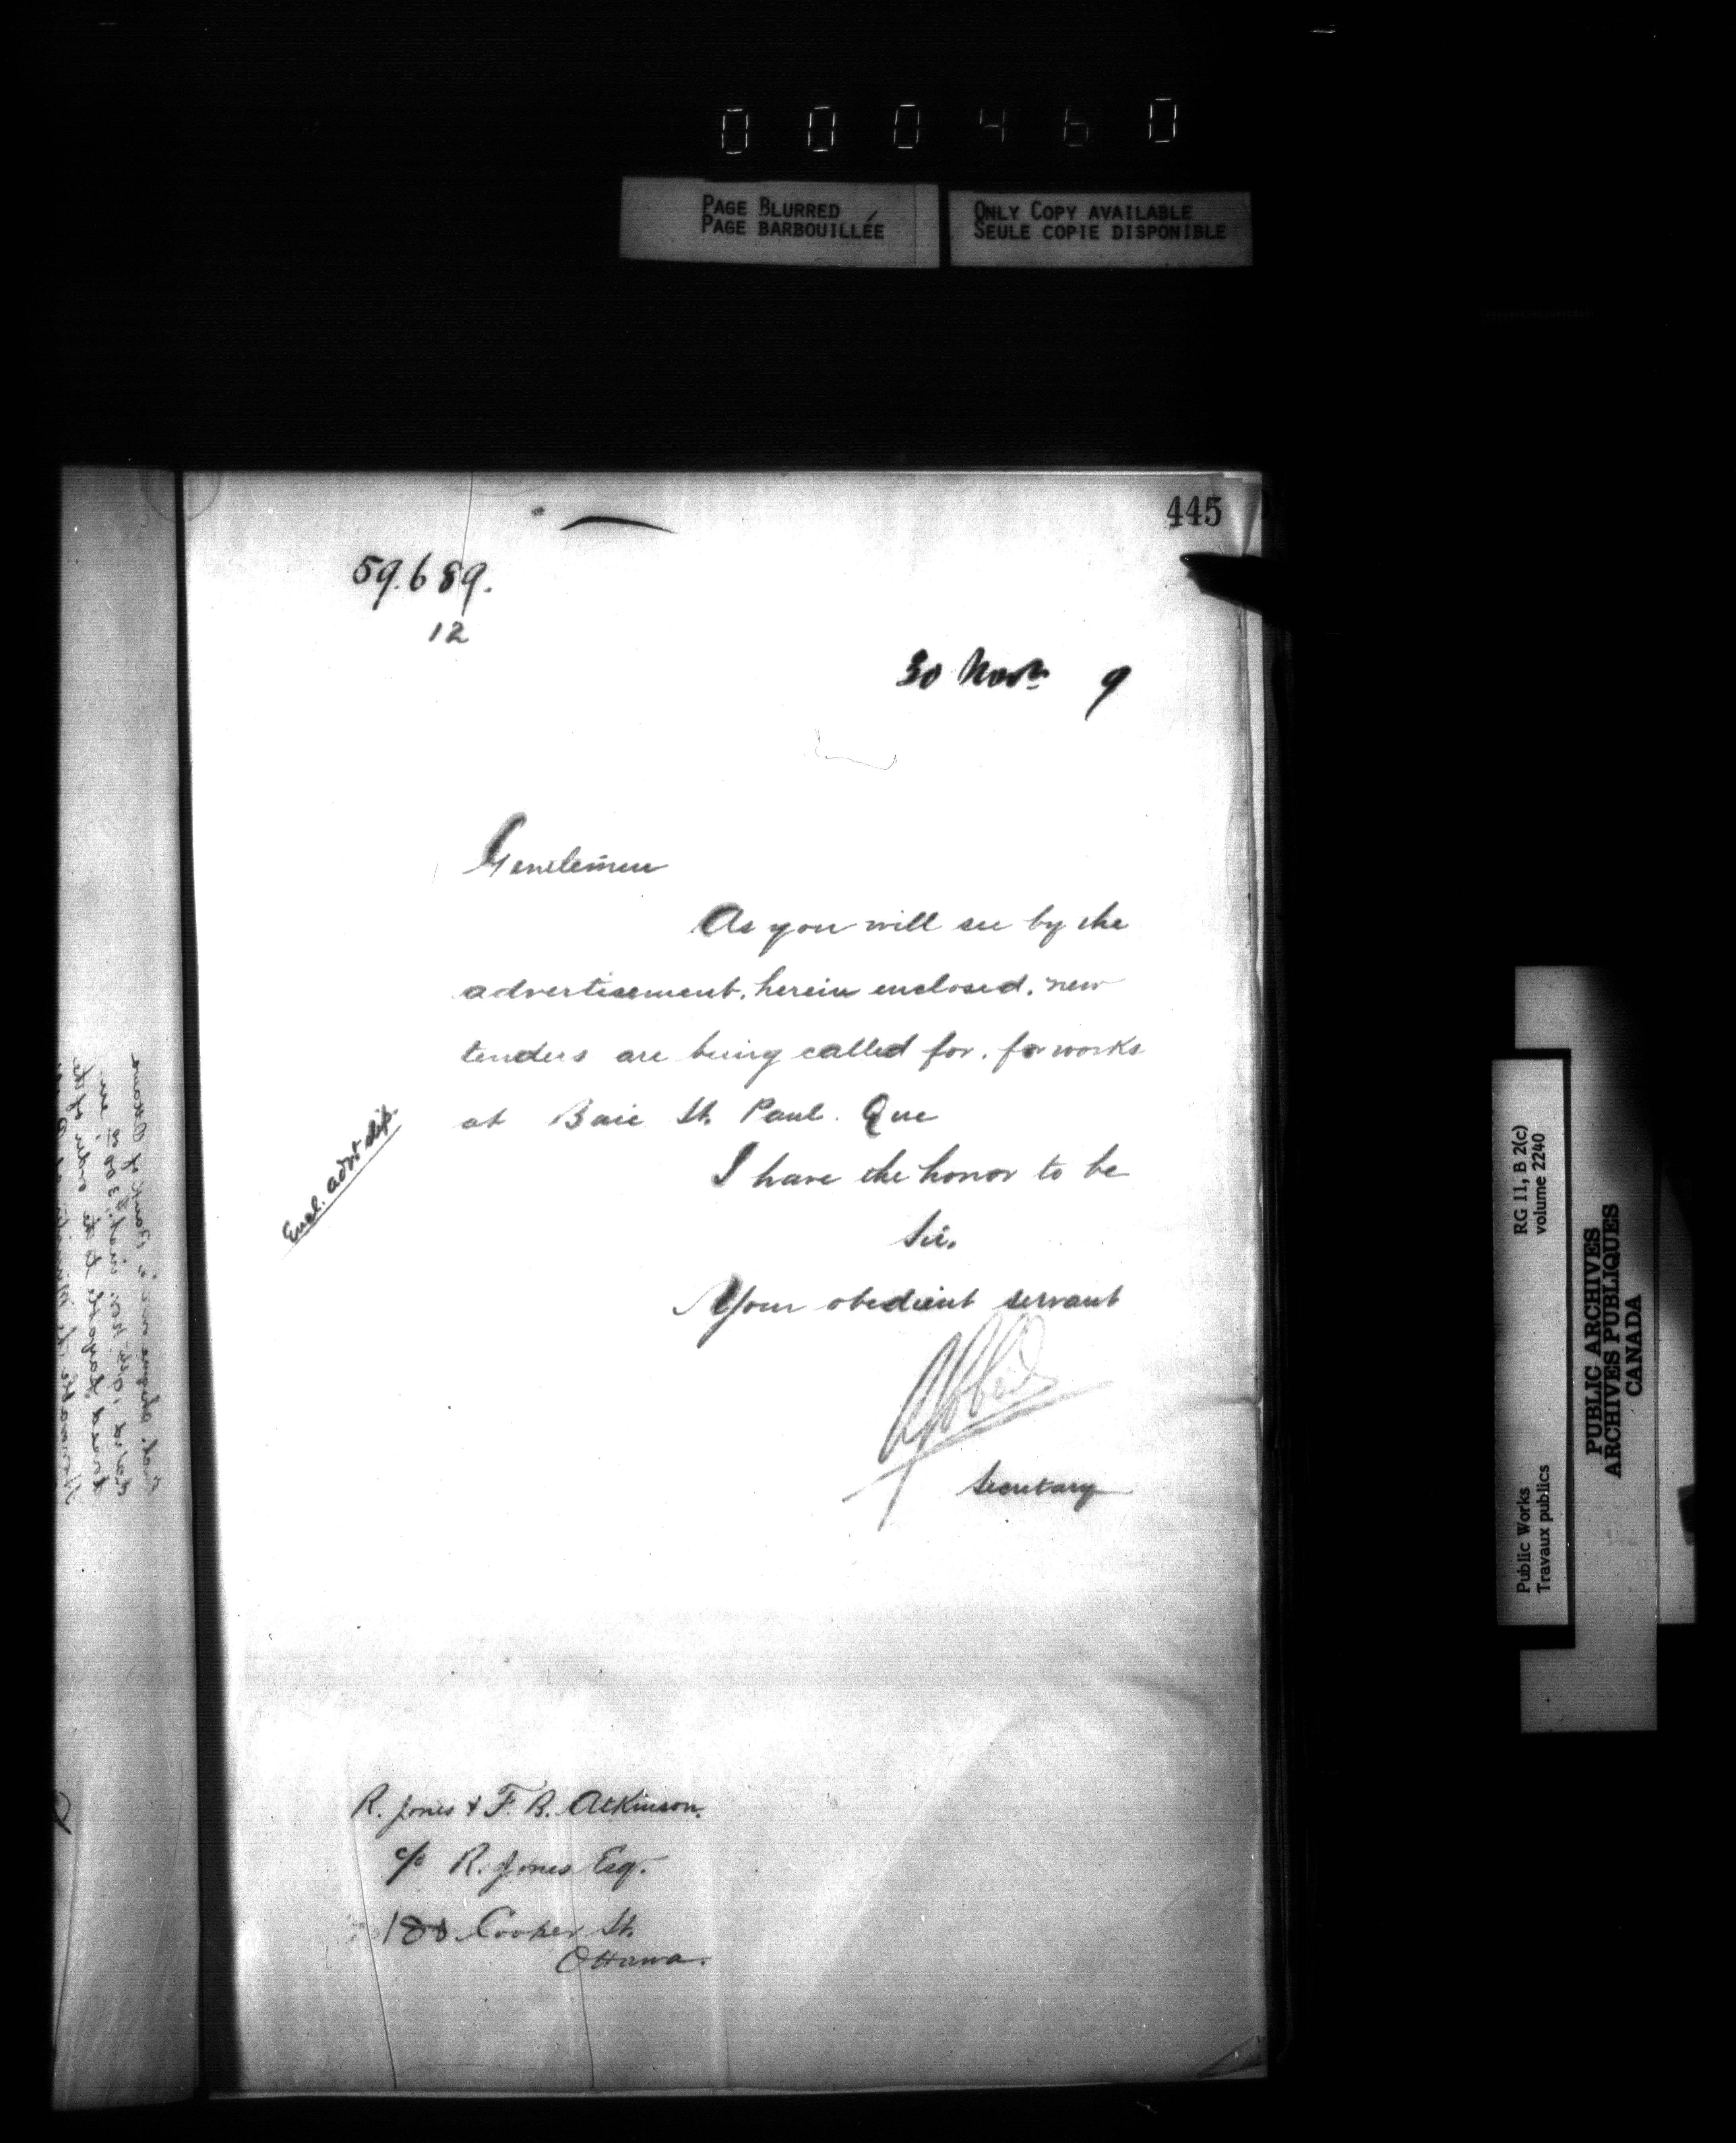 000460
PAGE BLURRED
PAGE BARBOUILLÉE
ONLY COPY AVAILABLE
SEULE COPIE DISPONIBLE
445
59.689.
12
30 Novr 9
Gentlemen
As you will see by the
advertisement, herein enclosed, new
tenders are being called for, for works
at Baie St. Paul. Que
I have the honor to be
Sir.
Your obedient servant
Secretary
Encl. advt slip.
R. Jones & F. B. Atkinson.
c/o R. Jones Esq.
180 Cooper St.
Ottawa.
Public Works
Travaux publics
RG 11, B 2(c)
volume 2240
PUBLIC ARCHIVES
ARCHIVES PUBLIQUES
CANADA